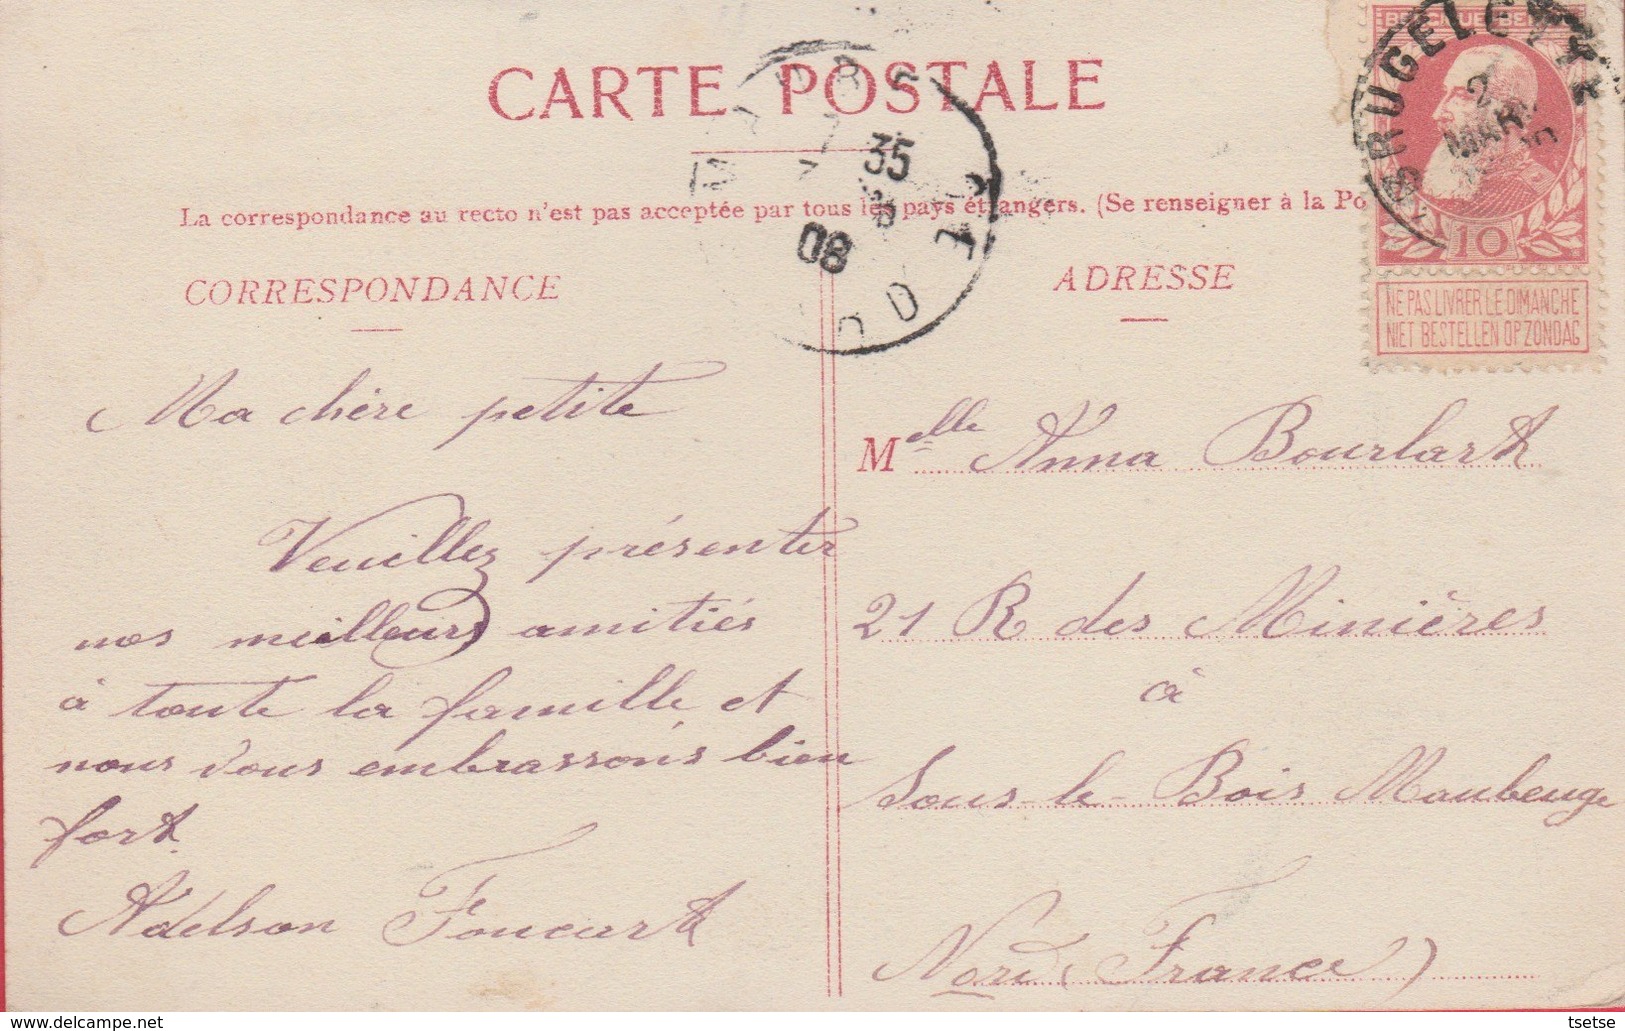 CARTE POSTALE
La correspondance au recto n'est pas acceptée par tous les pays étrangers. (Se renseigner à la Po
CORRESPONDANCE
Ma chère petite
Veuillez présenter
nos meilleurs amitiés
à toute la famille, et
nous vous embrassons bien
fort.
Adelson Foucart
35
3
08
NORD
BRUGELETTE
2
MAR
10
NE PAS LIVRER LE DIMANCHE
NIET BESTELLEN OP ZONDAG
ADRESSE
Melle Anna Bourlart
21 R des Minières
à
Sous-le-Bois Maubeuge
Nord (France)
delcampe.net
tsetse